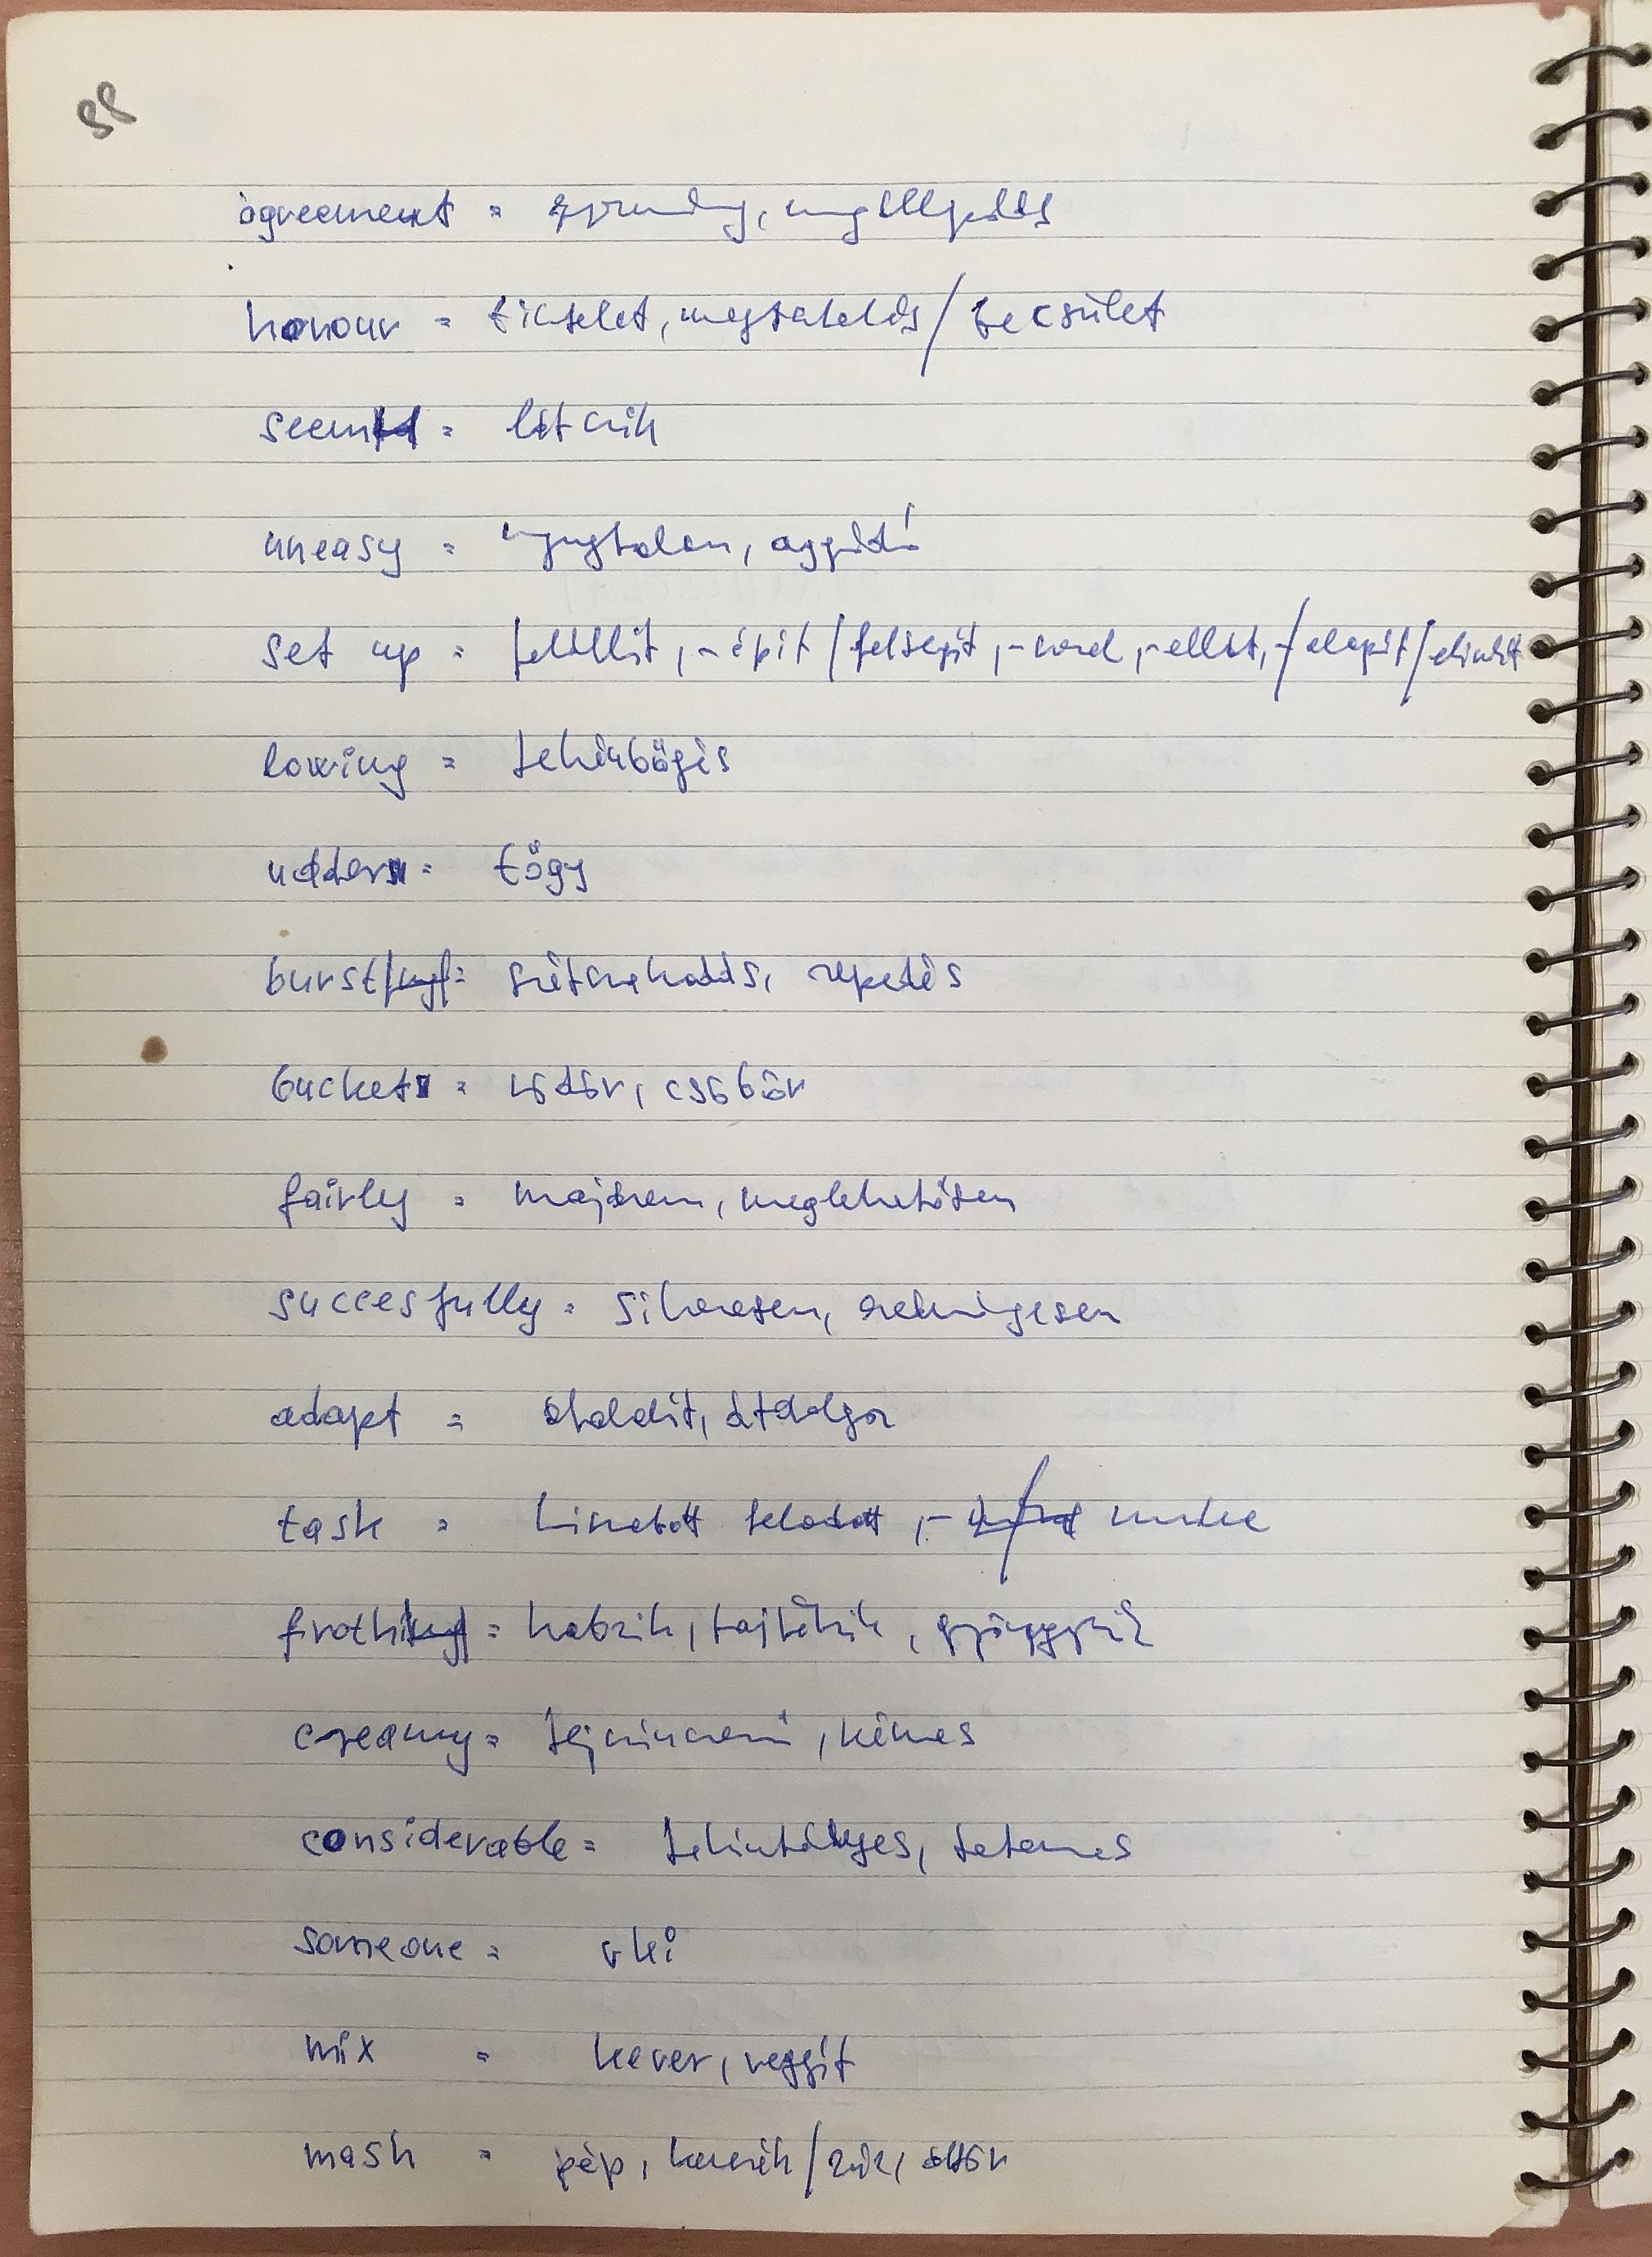 88
agreement = egyezmény, megállapodás
honour = tisztelet, megtisztelés / becsület
seem = látszik
uneasy = nyugtalan, aggódó
set up = felállít, -épít / felsegít, / alapít / elindít
lowing = tehénbőgés
udder = tőgy
burst = szétszakadás, repedés
bucket = vödör, csöbör
fairly = majdnem, meglehetősen
succesfully = sikeresen, szerencsésen
adapt = átalakít, átdolgoz
task = kiszabott feladat, - munka
froth = habzik, tajtékzik, gyöngyözik
creamy = tejszínszerű, krémes
considerable = tekintélyes, tetemes
someone = vki
mix = kever, vegyít
mash = pép, / zúz, áttör